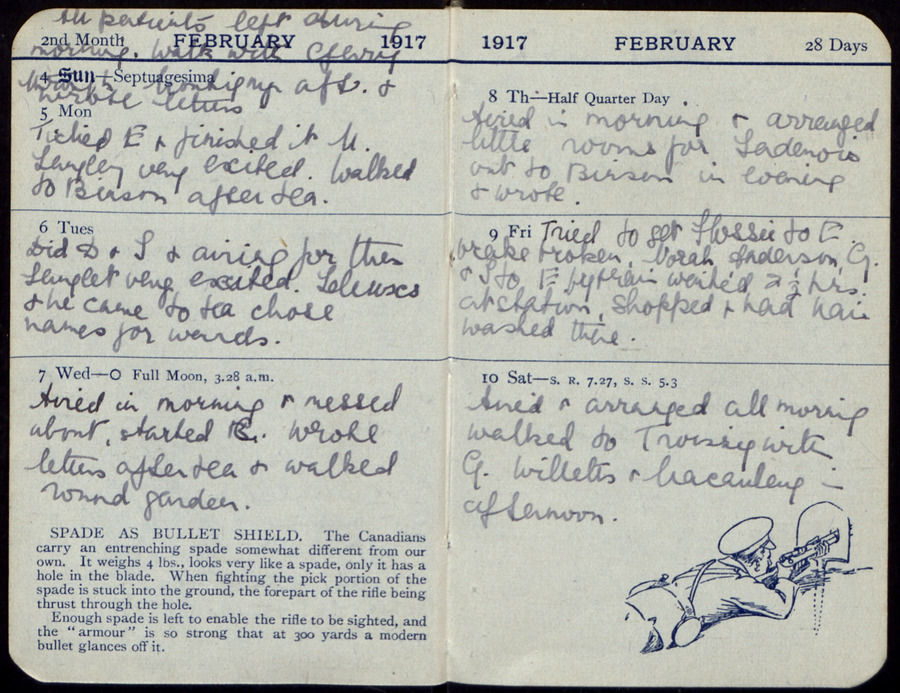 All patients left during
2nd Month FEBRUARY 1917
morning. Walk with
4 Sun—Septuagesima
aft. &
wrote letters
5 Mon
Tidied E & finished it M.
Langley very excited. Walked
to Binson after tea.
6 Tues
Did D & S & airing for them
Langley very excited.
& he came to tea chose
names for wards.
7 Wed—O Full Moon, 3.28 a.m.
Aired in morning & messed
about, started B. Wrote
letters after tea & walked
round garden.
SPADE AS BULLET SHIELD. The Canadians
carry an entrenching spade somewhat different from our
own. It weighs 4 lbs., looks very like a spade, only it has a
hole in the blade. When fighting the pick portion of the
spade is stuck into the ground, the forepart of the rifle being
thrust through the hole.
Enough spade is left to enable the rifle to be sighted, and
the "armour" is so strong that at 300 yards a modern
bullet glances off it.
1917 FEBRUARY 28 Days
8 Th—Half Quarter Day
Aired in morning & arranged
little rooms for
out to Binson in evening
& wrote.
9 Fri Tried to get Flossie to E.
brake broken, Norah Anderson, G.
& I to E by train waited 2½ hrs.
at station, shopped & had hair
washed there.
10 Sat—S. R. 7.27, S. S. 5.3
Aired & arranged all morning
walked to Troissy with
G. Willetts & Macaulay in
afternoon.